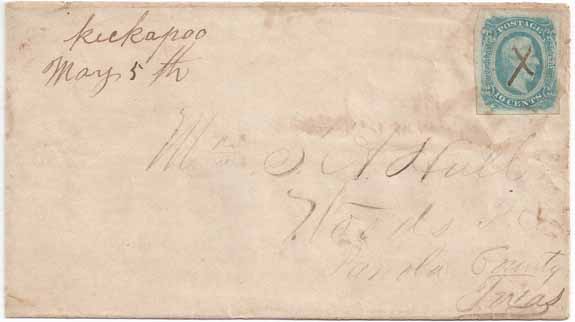 kickapoo
May 5th
POSTAGE
X
10 CENTS
Mrs S. A. Hull
Woods P. O.
Panola County
Texas